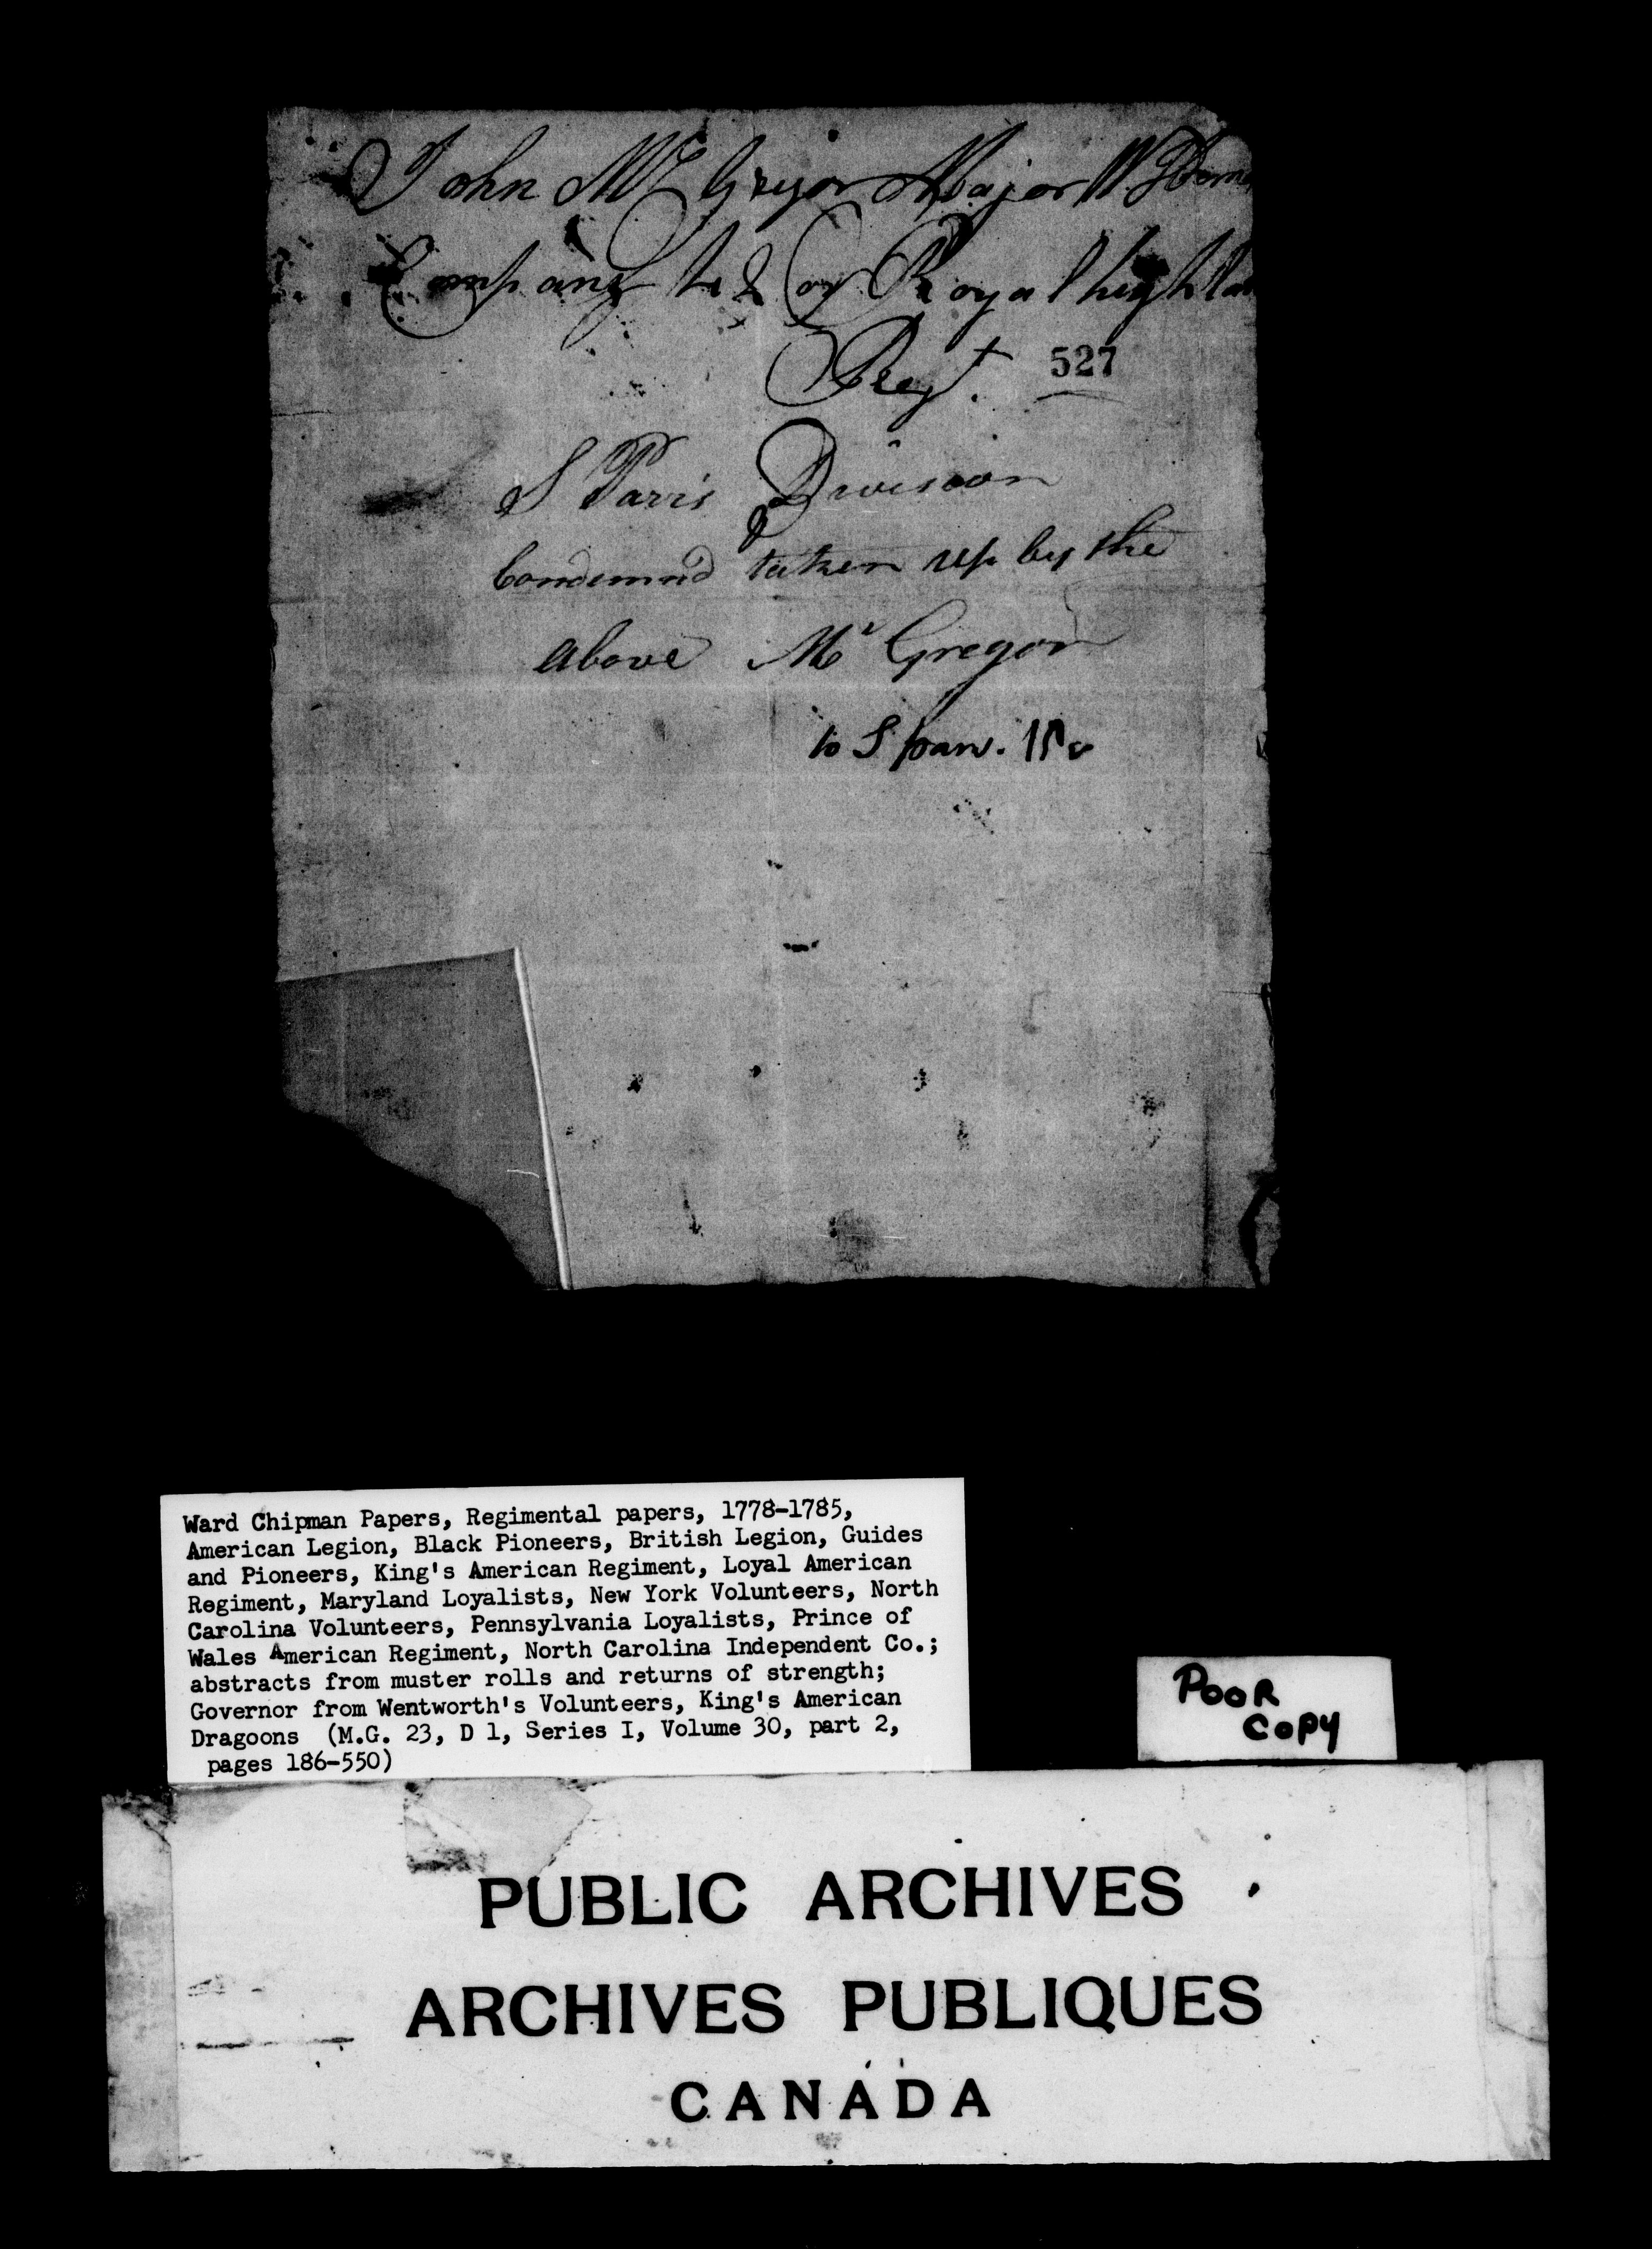 John Mc Gregor Major
Company 42 or Royal highlan
Regt. 527
S Parris Division
Condemnd taken up by the
above Mr Gregor
to S parr.
Ward Chipman Papers, Regimental papers, 1778-1785,
American Legion, Black Pioneers, British Legion, Guides
and Pioneers, King's American Regiment, Loyal American
Regiment, Maryland Loyalists, New York Volunteers, North
Carolina Volunteers, Pennsylvania Loyalists, Prince of
Wales American Regiment, North Carolina Independent Co.;
abstracts from muster rolls and returns of strength;
Governor from Wentworth's Volunteers, King's American
Dragoons (M.G. 23, D 1, Series I, Volume 30, part 2,
pages 186-550)
POOR
COPY
PUBLIC ARCHIVES
ARCHIVES PUBLIQUES
CANADA